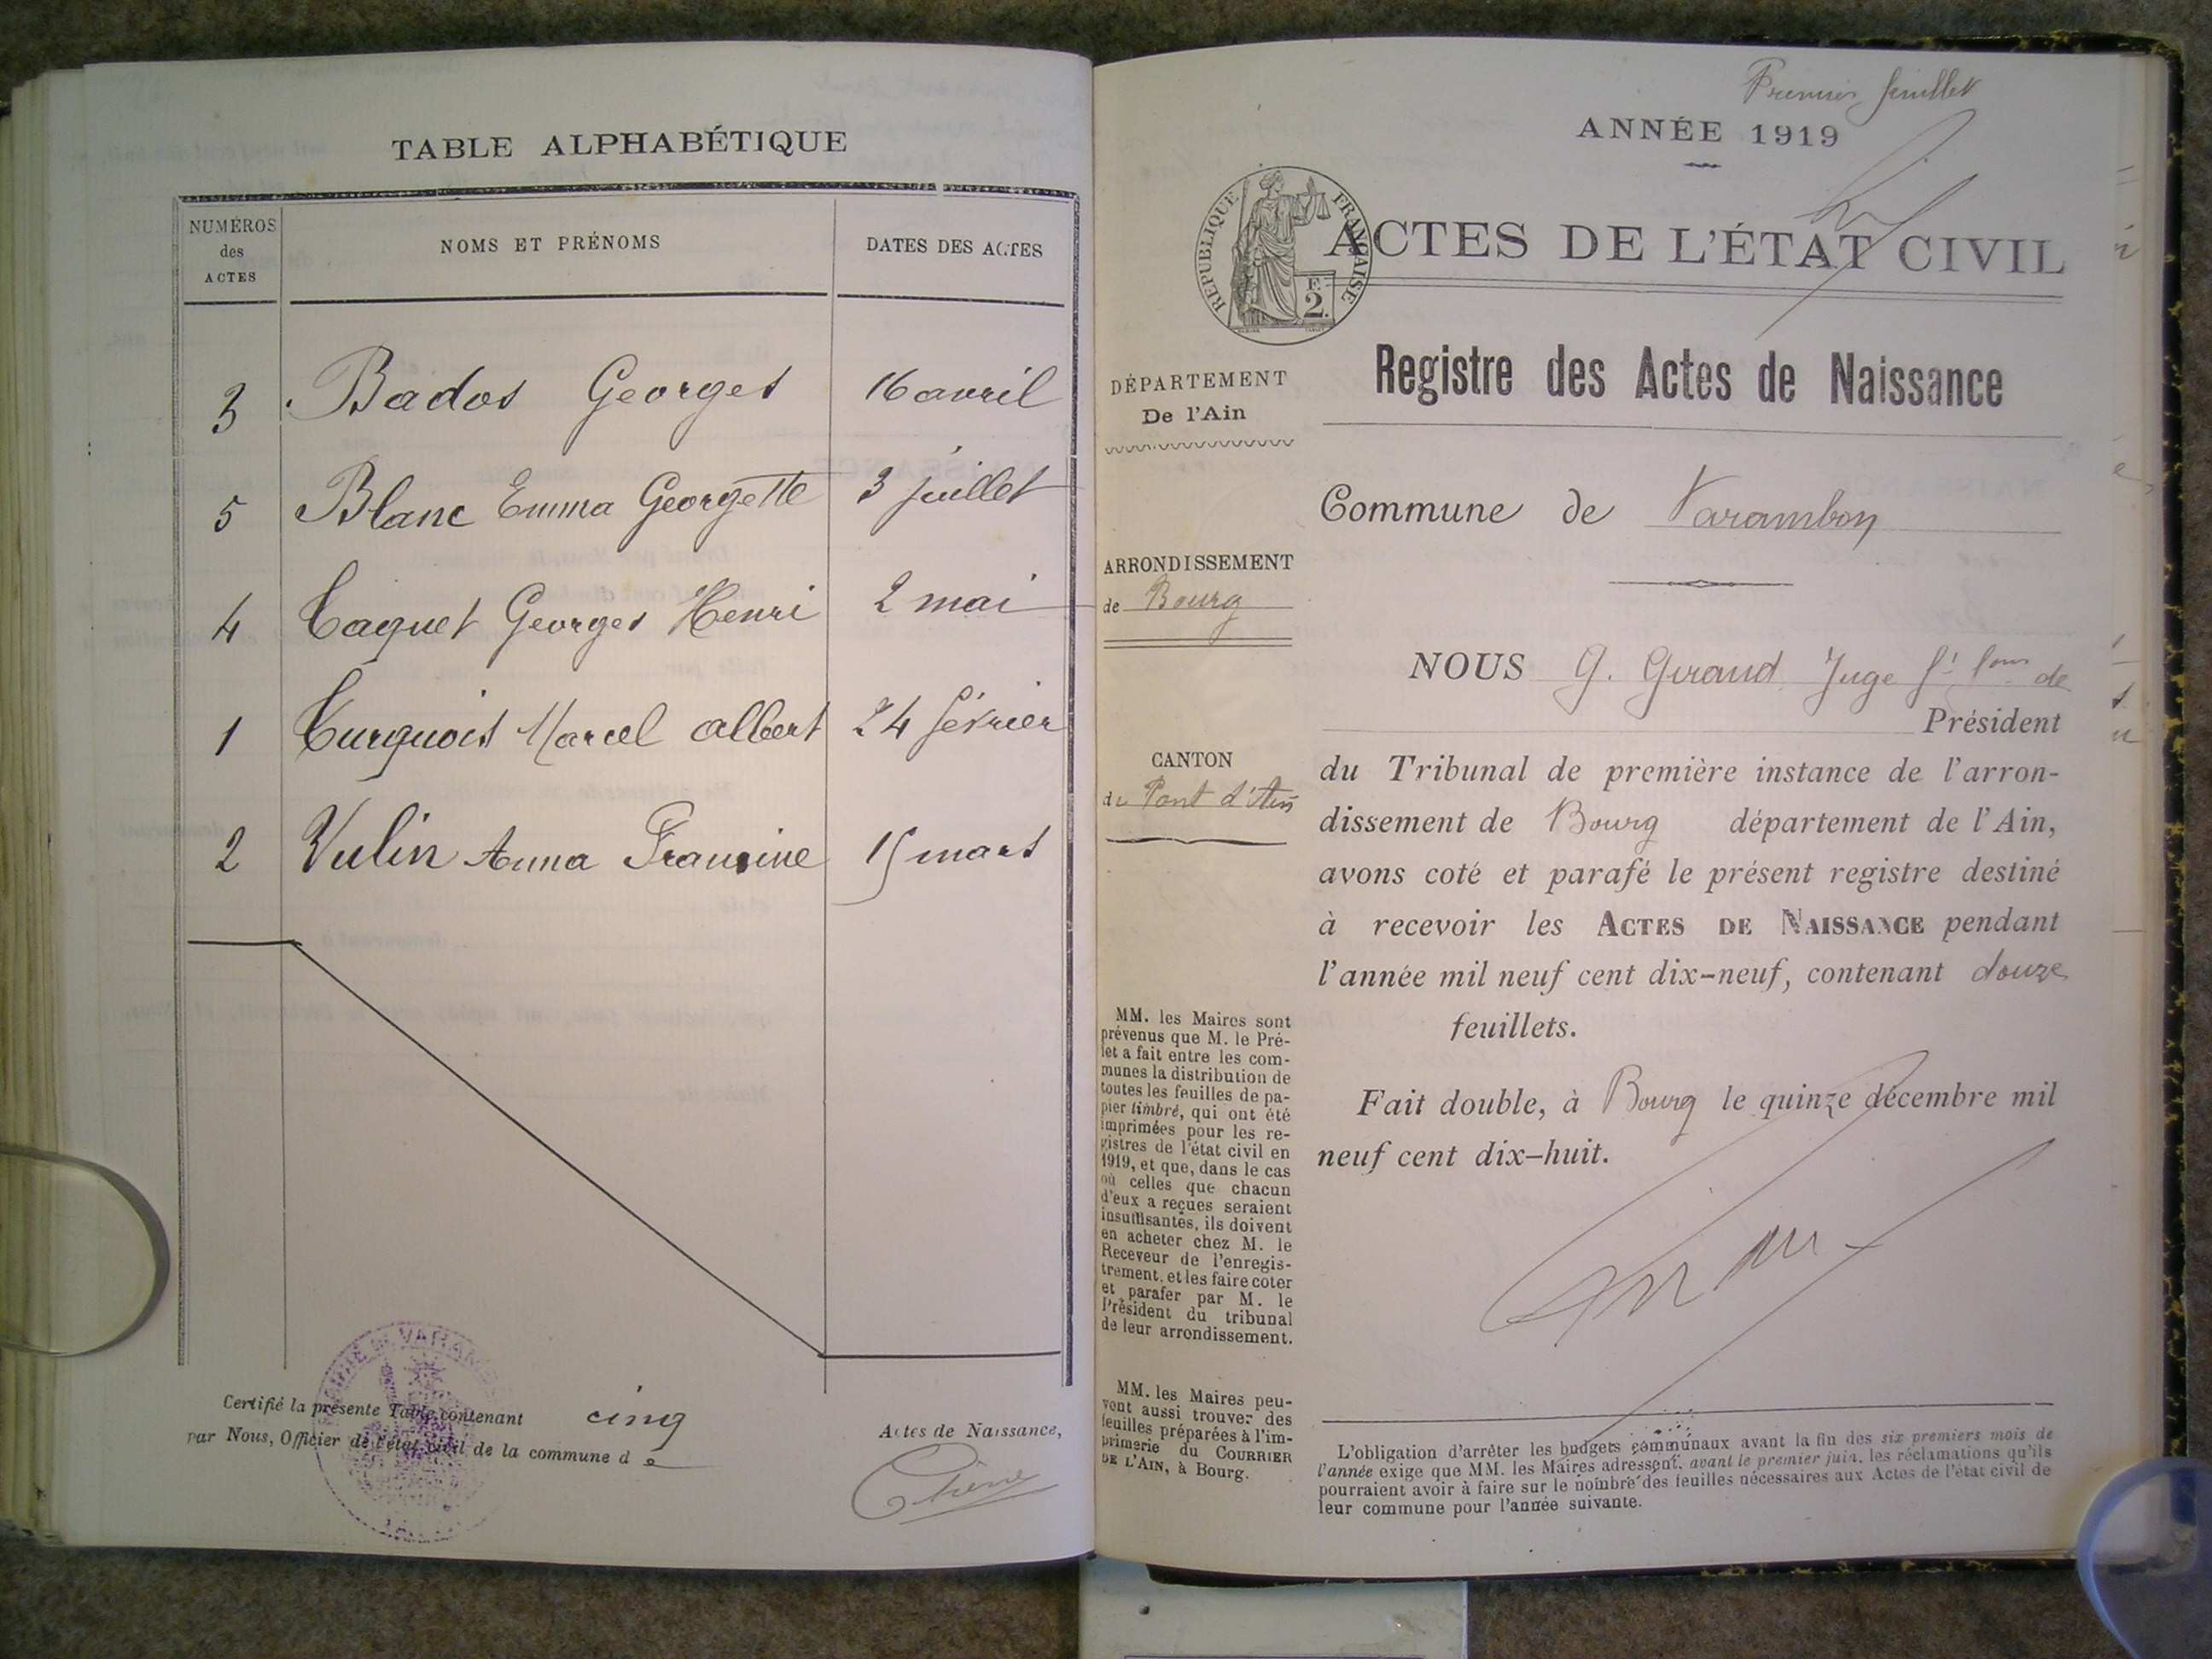 TABLE ALPHABÉTIQUE
NUMÉROS des ACTES
NOMS ET PRÉNOMS
DATES DES ACTES
3 Bados Georges 16 avril
5 Blanc Emma Georgette 3 juillet
4 Caquet Georges Henri 2 mai
1 Curquois Marcel Albert 24 février
2 Vulin Anna Francine 15 mars
Certifié la présente Table contenant cinq Actes de Naissance,
par Nous, Officier de l'état civil de la commune de
Premier feuillet
ANNÉE 1919
RÉPUBLIQUE FRANÇAISE
2
ACTES DE L'ÉTAT CIVIL
Registre des Actes de Naissance
DÉPARTEMENT
De l'Ain
Commune de Varambon
ARRONDISSEMENT
de Bourg
CANTON
de Pont d'Ain
NOUS G. Giraud Juge de
Président
du Tribunal de première instance de l'arron-
dissement de Bourg département de l'Ain,
avons coté et parafé le présent registre destiné
à recevoir les ACTES DE NAISSANCE pendant
l'année mil neuf cent dix-neuf, contenant douze
feuillets.
Fait double, à Bourg le quinze décembre mil
neuf cent dix-huit.
MM. les Maires sont
prévenus que M. le Pré-
fet a fait entre les com-
munes la distribution de
toutes les feuilles de pa-
pier timbré, qui ont été
imprimées pour les re-
gistres de l'état civil en
1919, et que, dans le cas
où celles que chacun
d'eux a reçues seraient
insuffisantes, ils doivent
en acheter chez M. le
Receveur de l'enregis-
trement, et les faire coter
et parafer par M. le
Président du tribunal
de leur arrondissement.
MM. les Maires peu-
vent aussi trouver des
feuilles préparées à l'im-
primerie du COURRIER
DE L'AIN, à Bourg.
L'obligation d'arrêter les budgets communaux avant la fin des six premiers mois de
l'année exige que MM. les Maires adressent, avant le premier juin, les réclamations qu'ils
pourraient avoir à faire sur le nombre des feuilles nécessaires aux Actes de l'état civil de
leur commune pour l'année suivante.